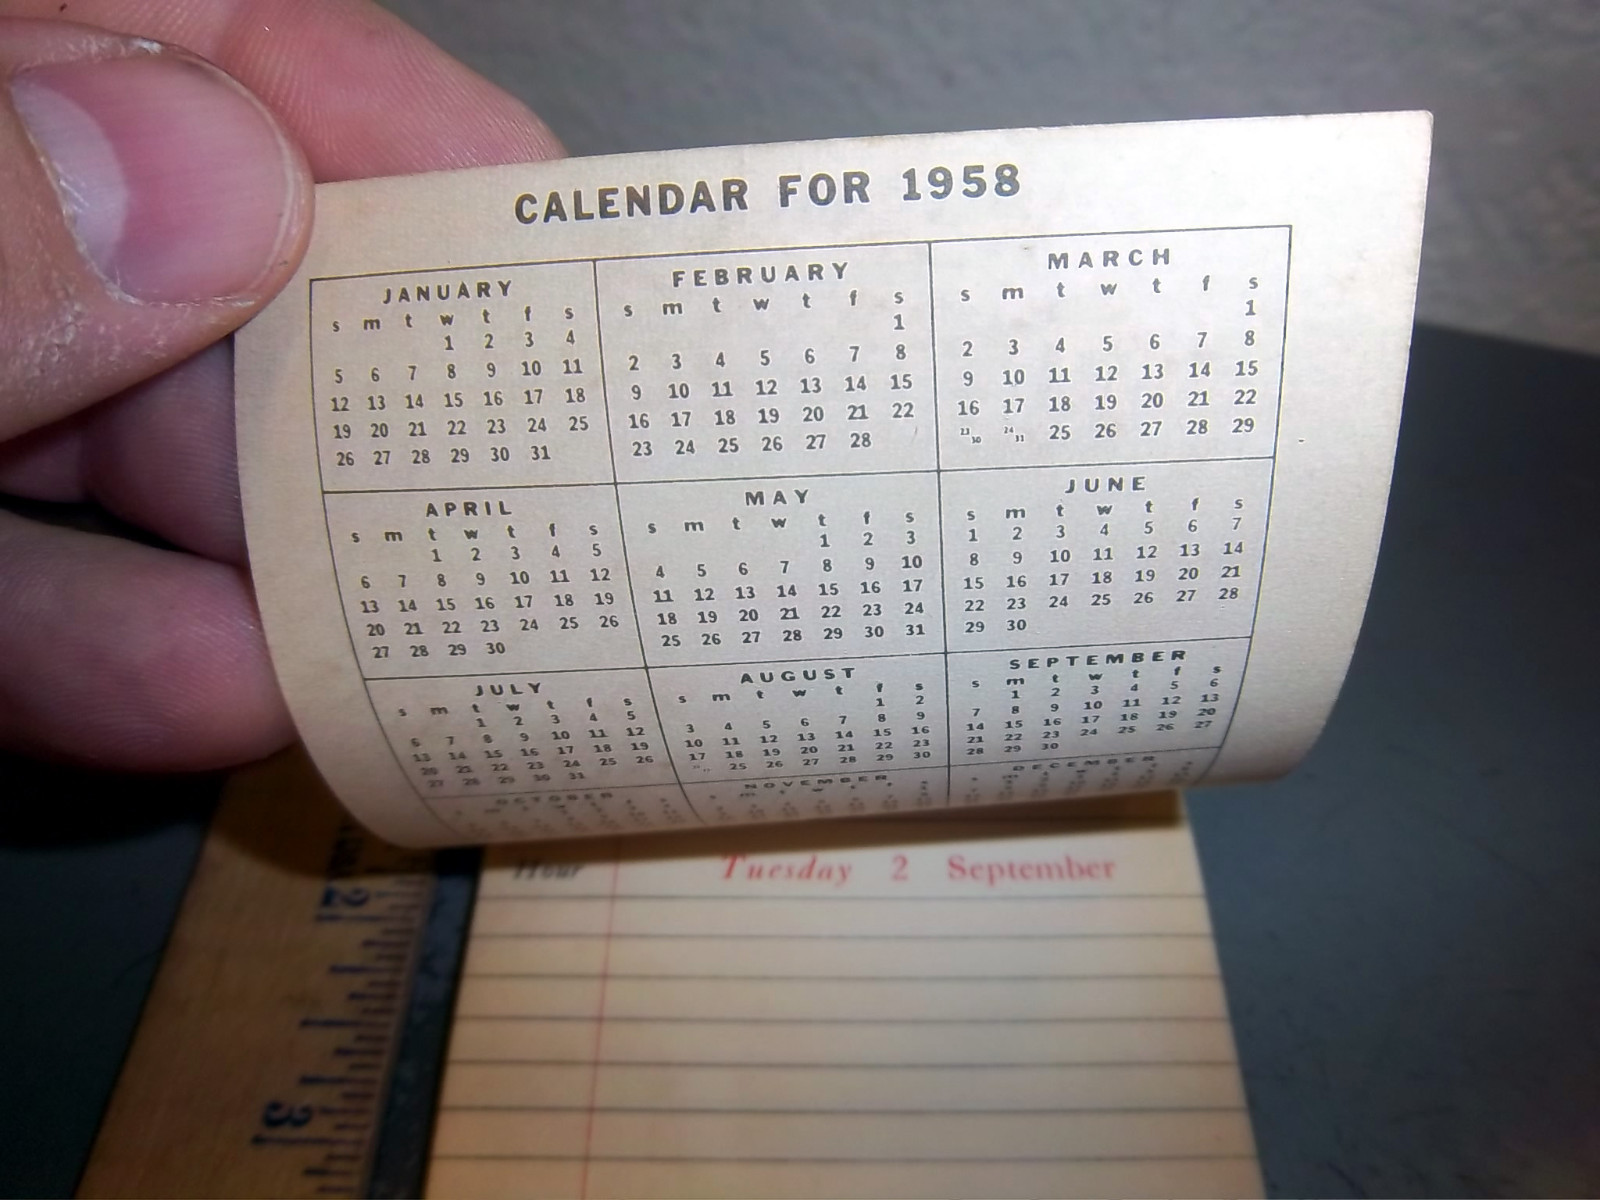 CALENDAR FOR 1958
JANUARY
s m t w t f s
1 2 3 4
5 6 7 8 9 10 11
12 13 14 15 16 17 18
19 20 21 22 23 24 25
26 27 28 29 30 31
FEBRUARY
s m t w t f s
1
2 3 4 5 6 7 8
9 10 11 12 13 14 15
16 17 18 19 20 21 22
23 24 25 26 27 28
MARCH
s m t w t f s
1
2 3 4 5 6 7 8
9 10 11 12 13 14 15
16 17 18 19 20 21 22
23/30 24/31 25 26 27 28 29
APRIL
s m t w t f s
1 2 3 4 5
6 7 8 9 10 11 12
13 14 15 16 17 18 19
20 21 22 23 24 25 26
27 28 29 30
MAY
s m t w t f s
1 2 3
4 5 6 7 8 9 10
11 12 13 14 15 16 17
18 19 20 21 22 23 24
25 26 27 28 29 30 31
JUNE
s m t w t f s
1 2 3 4 5 6 7
8 9 10 11 12 13 14
15 16 17 18 19 20 21
22 23 24 25 26 27 28
29 30
JULY
s m t w t f s
1 2 3 4 5
6 7 8 9 10 11 12
13 14 15 16 17 18 19
20 21 22 23 24 25 26
27 28 29 30 31
AUGUST
s m t w t f s
1 2
3 4 5 6 7 8 9
10 11 12 13 14 15 16
17 18 19 20 21 22 23
25 26 27 28 29 30
SEPTEMBER
s m t w t f s
1 2 3 4 5 6
7 8 9 10 11 12 13
14 15 16 17 18 19 20
21 22 23 24 25 26 27
28 29 30
OCTOBER
NOVEMBER
DECEMBER
Hour Tuesday 2 September
2
3